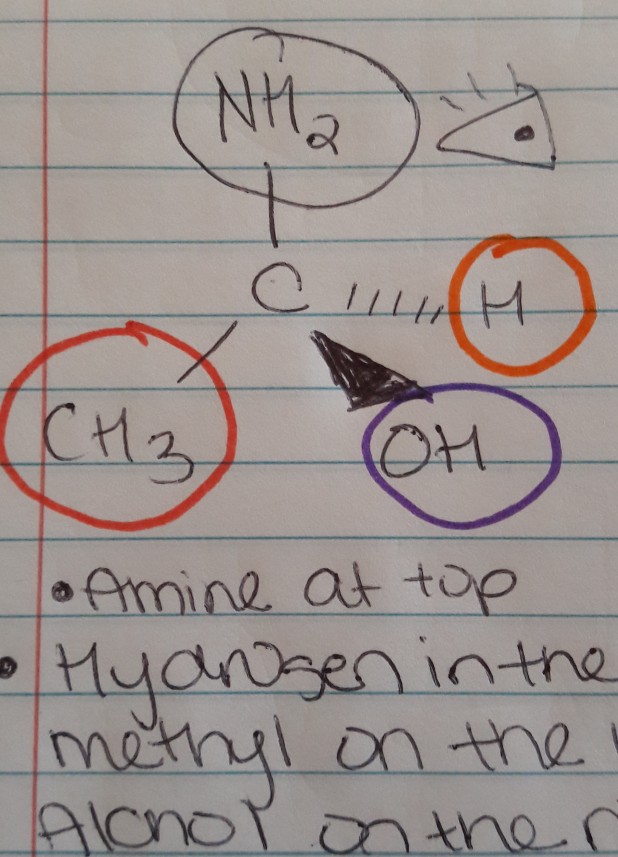 NH2
C H
CH3 OH
•Amine at top
• Hydrogen in the
methyl on the
Alcnol on the r